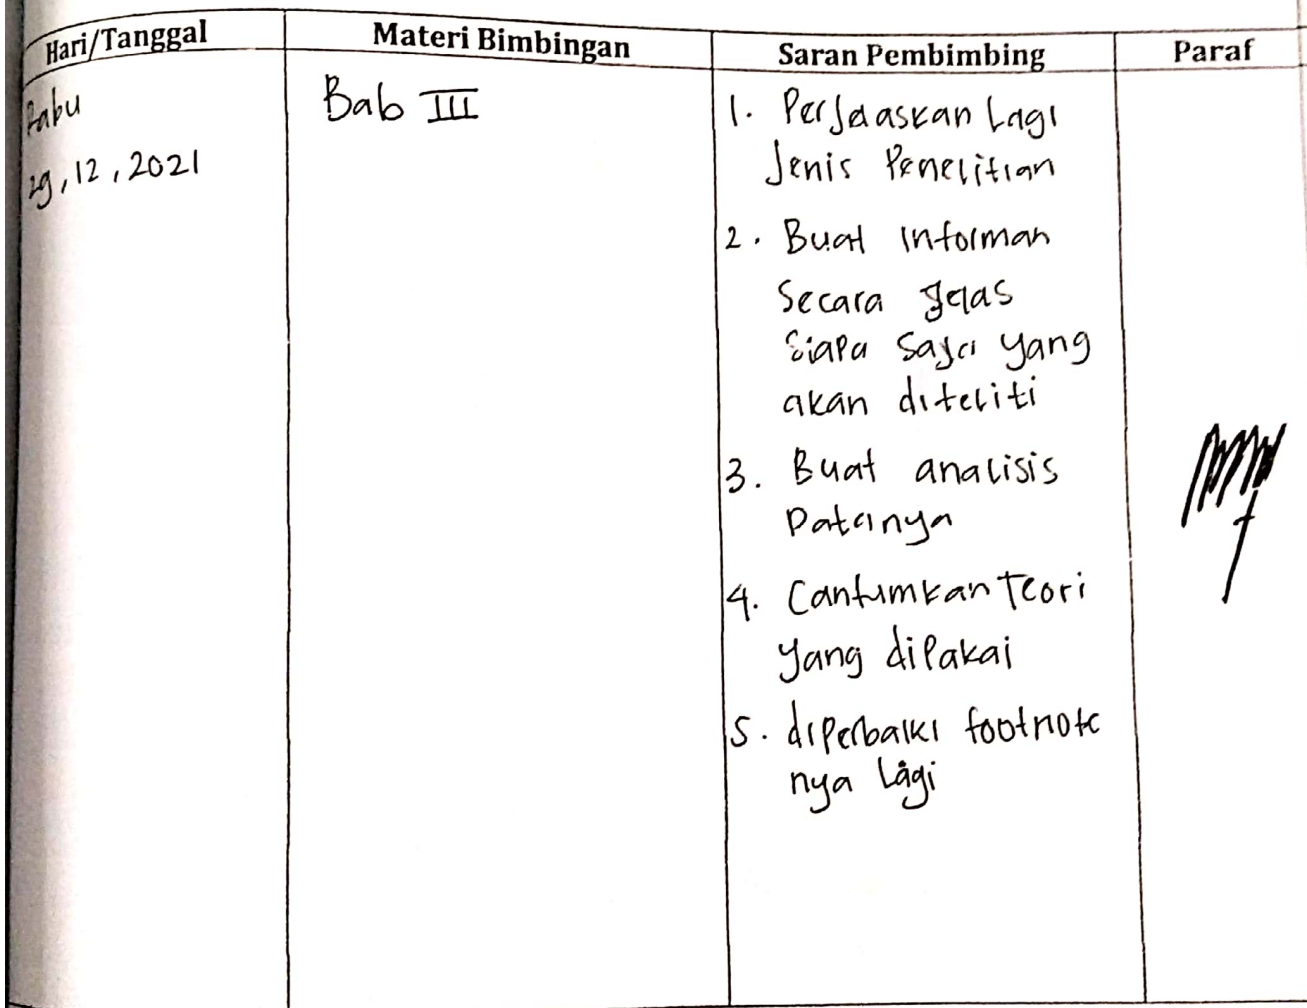 Hari/Tanggal
Materi Bimbingan
Saran Pembimbing
Paraf
Rabu
29, 12, 2021
Bab III
1. Perjelaskan Lagi
Jenis Penelitian
2. Buat informan
Secara jelas
Siapa saja yang
akan diteliti
3. Buat analisis
Datanya
4. Cantumkan Teori
yang dipakai
5. diperbaiki footnote
nya Lagi